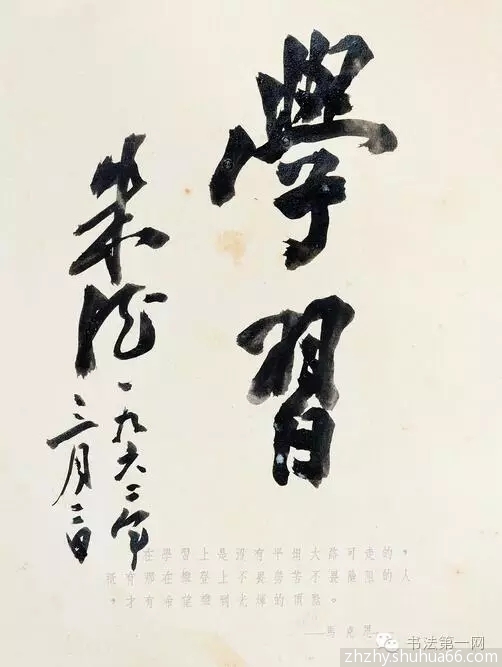 學習
朱德
一九六二年
三月二日
在學習上是沒有平坦大路可走的，
祇有那在攀登上不畏勞苦不畏險阻的人
，才有希望攀到光輝的頂點。
——馬克思
书法第一网
zhzhyshuhua66.com